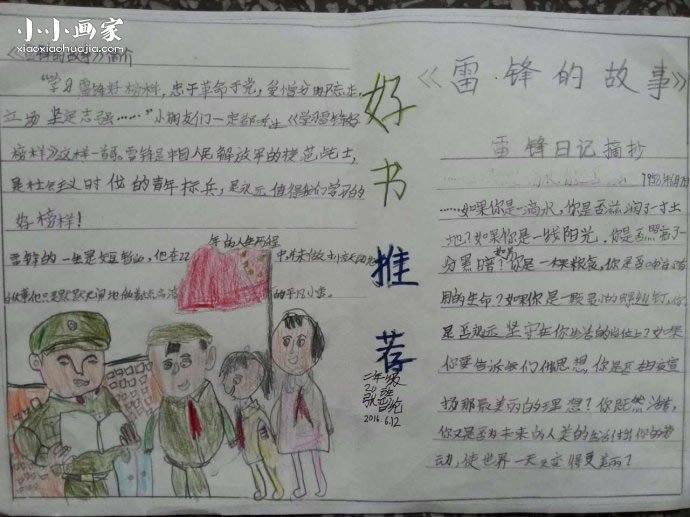 小小画家
xiaoxiaohuajia.com
《雷锋的故事》简介
"学习雷锋好榜样，忠于革命忠于党，爱憎分明不忘本，
立场坚定志强……"小朋友们一定都会《学习雷锋好
榜样》这样一首。雷锋是中国人民解放军的模范战士，
是社会主义时代的青年标兵，是永远值得我们学习的
好榜样！
雷锋的一生是短暂的，他在22年的人生历程中，并未做
的平凡小事。
好书推荐
二年级
2016.6.12
《雷锋的故事》
雷锋日记摘抄
1958年6月7日
……如果你是一滴水，你是否滋润了一寸土
地？如果你是一线阳光，你是否照亮了一
分黑暗？如果你是一颗粮食，你是否哺育了有
用的生命？如果你是一颗最小的螺丝钉，你
是否永远坚守在你生活的岗位上？如果
你要告诉我们什么思想，你是否在日夜宣
扬那最美丽的理想？你既然活着，
你又是否为未来的人类的生活付出你的劳
动，使世界一天天变得更美丽？